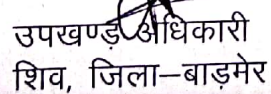 उपखण्ड अधिकारी
शिव, जिला–बाड़मेर